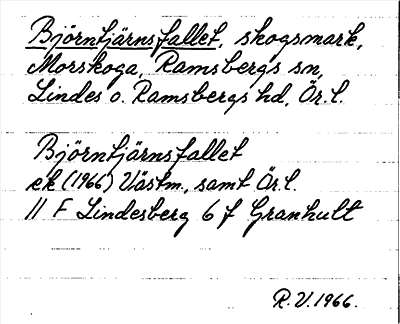 Björntjärnsfallet, skogsmark,
Morskoga, Ramsbergs sn,
Lindes o. Ramsbergs hd, Ör. l.
Björntjärnsfallet
ek (1966) Västm., samt Ör. l.
11 F Lindesberg 6 f Granhult
R. V. 1966.